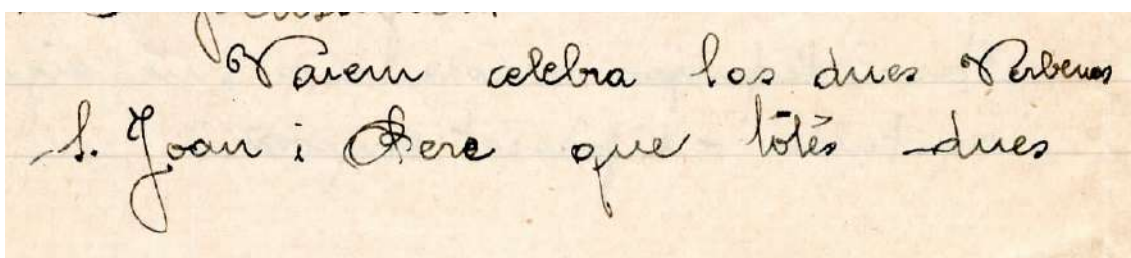 Varem celebra las dues Verbenas
S. Joan i Pere que tōtēs dues